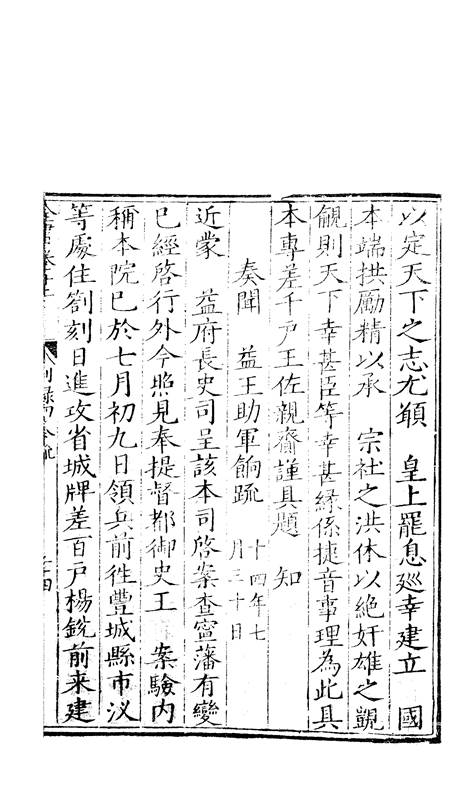 以定天下之志尤願　皇上罷息廵幸建立　國
本端拱勵精以承　宗社之洪休以絶奸雄之覬
覦則天下幸甚臣等幸甚緣係捷音事理為此具
本專差千戶王佐親齎謹具題　知
奏聞　益王助軍餉疏　十四年七
月三十日
近蒙　益府長史司呈該本司啓案查寧藩有變
已經啓行外今照見奉提督都御史王　案驗內
稱本院已於七月初九日領兵前徃豐城縣市汊
等處住劄刻日進攻省城牌差百戶楊銳前来建